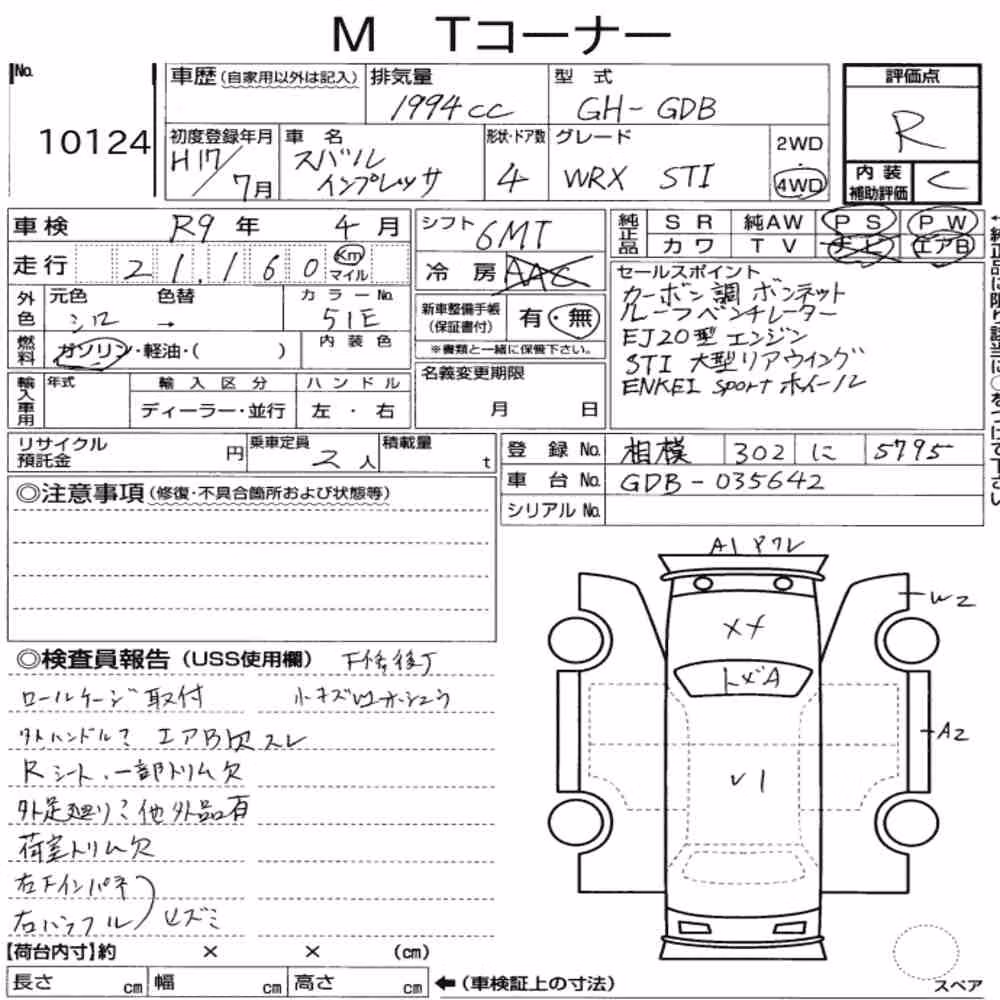 M Tコーナー
No. 10124
車歴(自家用以外は記入) 排気量 1994cc 型式 GH-GDB
初度登録年月 H17/7月 車名 スバル インプレッサ 形状・ドア数 4 グレード WRX STI 2WD・4WD
評価点 R
内装補助評価 C
車検 R9年 4月
走行 21,160 Km マイル
外色 元色 シロ 色替 → カラーNo. 51E
燃料 ガソリン・軽油・( ) 内装色
輸入車用 年式 輸入区分 ディーラー・並行 ハンドル 左・右
シフト 6MT
冷房 AAC
新車整備手帳(保証書付) 有・無
※書類と一緒に保管下さい。
名義変更期限 月 日
純正品 SR 純AW PS PW
カワ TV ナビ エアB
セールスポイント
カーボン調ボンネット
ルーフベンチレーター
EJ20型エンジン
STI 大型リアウイング
ENKEI sportホイール
←純正品に限り該当に○をつけて下さい
リサイクル預託金 円 乗車定員 2人 積載量 t
登録No. 相模 302 に 5795
車台No. GDB-035642
シリアルNo.
◎注意事項(修復・不具合箇所および状態等)
◎検査員報告(USS使用欄) 下修後了
ロールケージ取付 小キズ凹
社外ハンドル エアB欠 スレ
Rシート、一部トリム欠
外足廻り 他外品有
荷室トリム欠
右Fインパネ
【荷台内寸】約 × × (cm)
長さ cm 幅 cm 高さ cm ←(車検証上の寸法)
A1
W2
XX
トビA
A2
V1
スペア